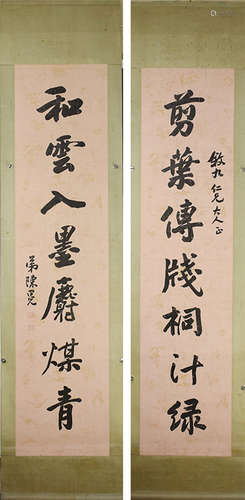 剪葉傳牋桐汁绿
仁兄大人正
和雲入墨麝煤青
弟陳冕